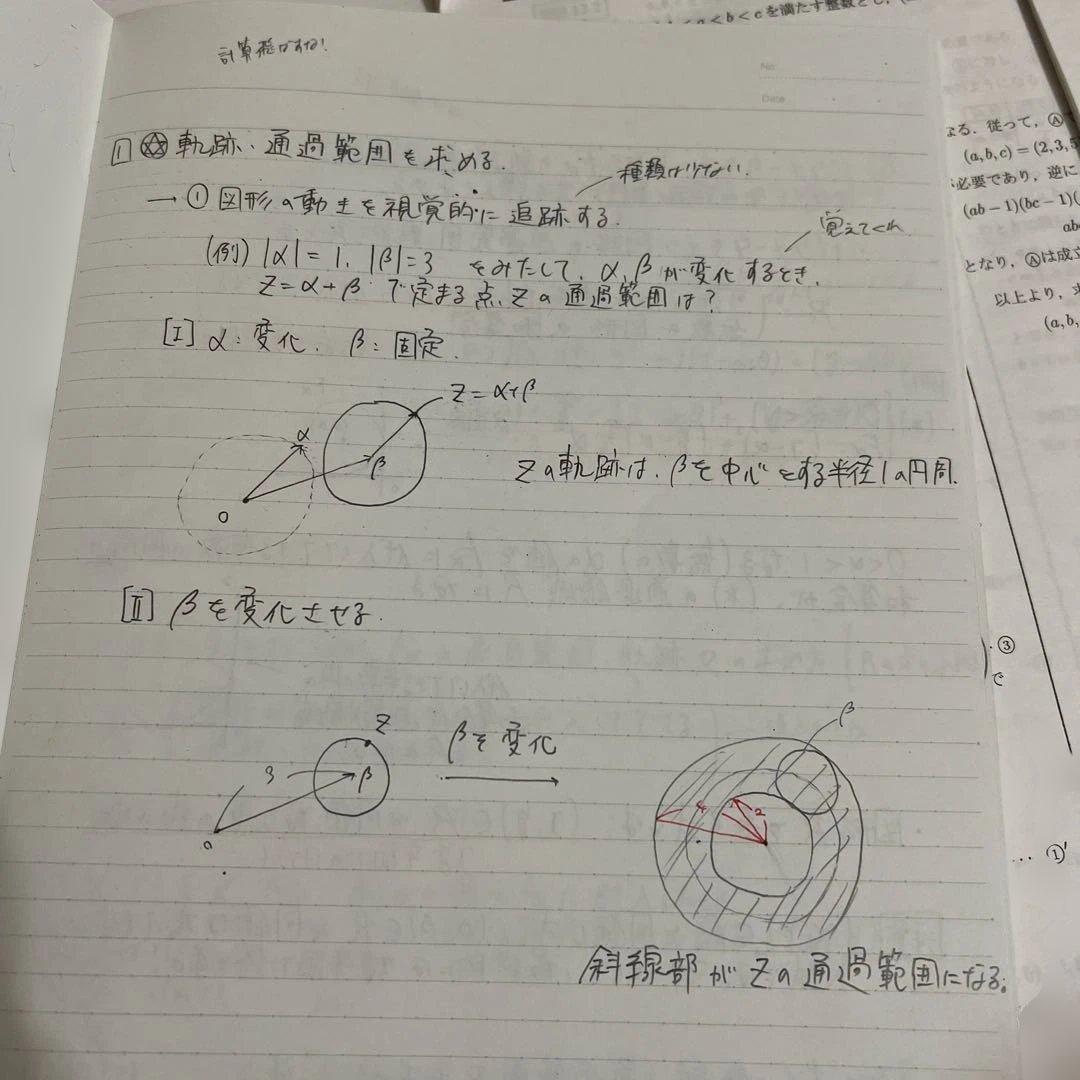 No.
Date
1 ☆ 軌跡、通過範囲を求める.
種類は少ない.
→ ① 図形の動きを視覚的に追跡する.
覚えてくれ
(例) |α|=1, |β|=3 をみたして, α, βが変化するとき,
Z=α+β で定まる点Zの通過範囲は?
[I] α:変化. β:固定.
Z=α+β
α
β
O
Zの軌跡は, βを中心とする半径1の円周.
[II] βを変化させる.
Z
3
β
O
βを変化
β
4
3
2
斜線部がZの通過範囲になる.
<b<cを満たす整数とし,
なる. 従って, Ⓐ
(a,b,c)=(2,3,5
必要であり, 逆に
(ab-1)(bc-1)(
ab
となり, Ⓐは成立
以上より, 求
(a,b,
③
で
… ①′